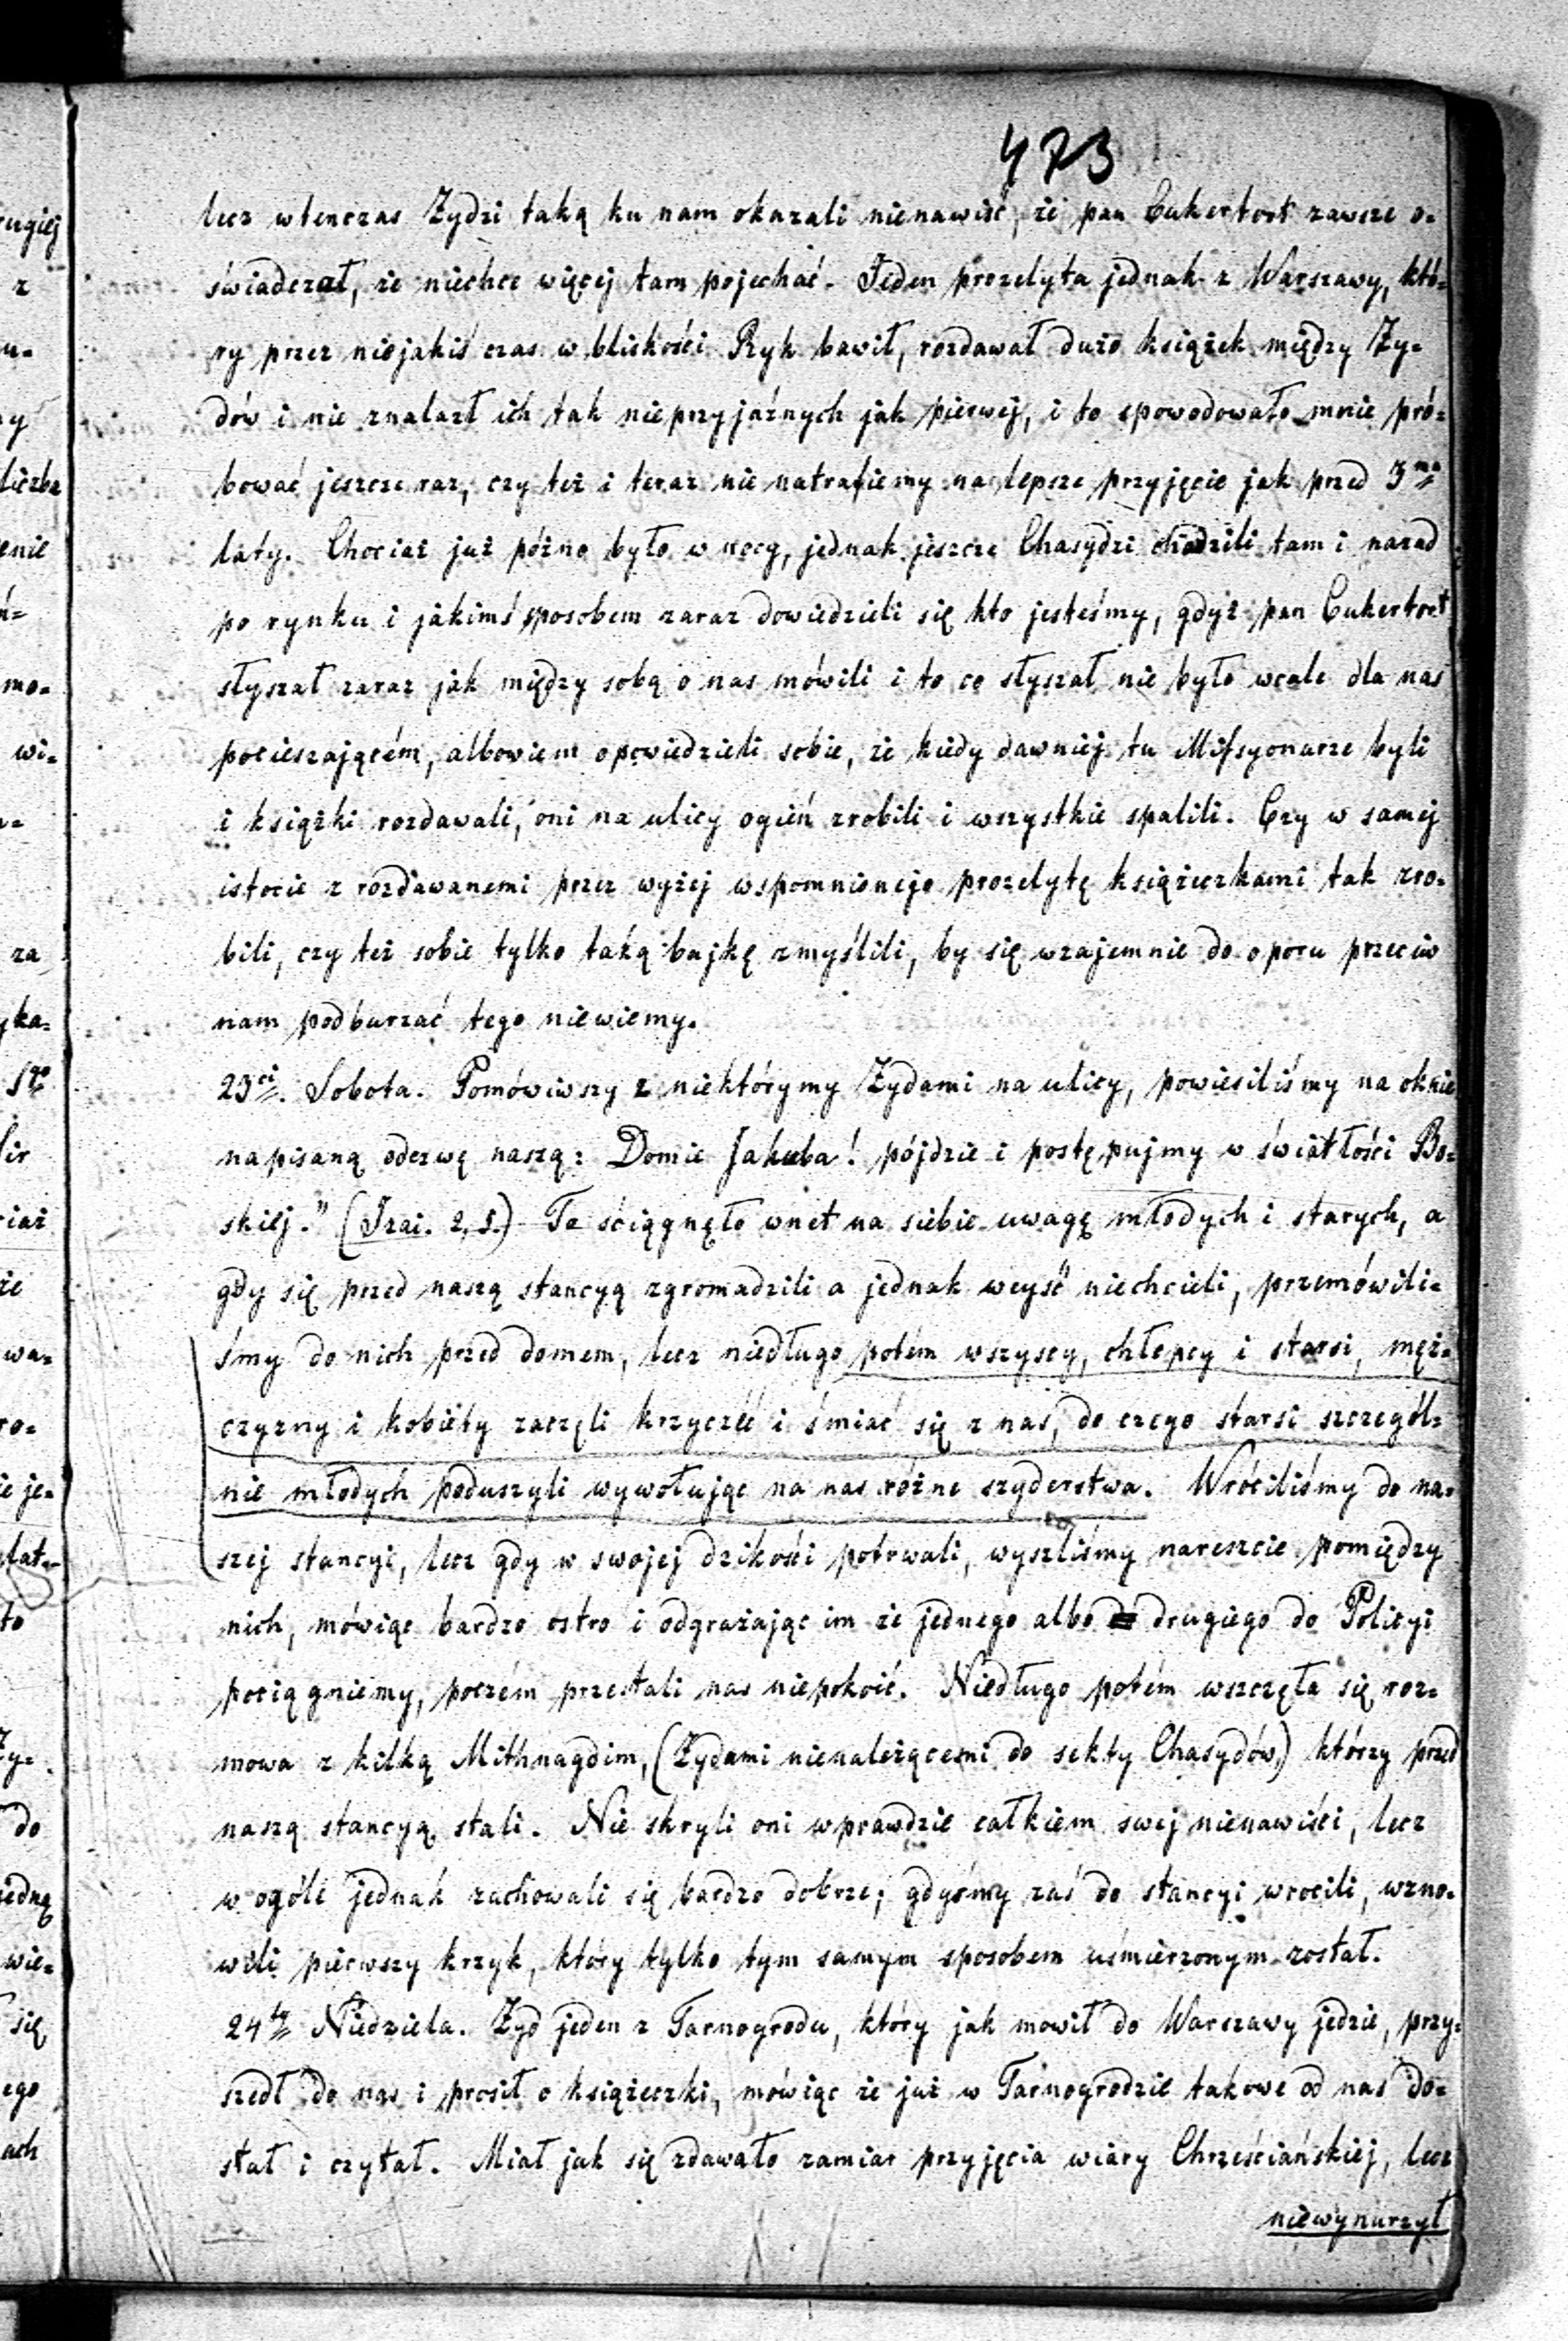 473
lecz wtenczas Żydzi taką ku nam okazali nienawiść, że pan Cukertort zawsze o-
świadczał, że niechce więcej tam pojechać. Jeden prozelyta jednak z Warszawy, któ-
ry przez niejakiś czas w bliskości Ryk bawił, rozdawał dużo książek między Ży-
dów i nie znalazł ich tak nieprzyjaźnych jak pierwej, i to spowodowało mnie pró-
bować jeszcze raz, czy też i teraz nie natrafiemy na lepsze przyjęcie jak przed 3ma
laty. Chociaż już późno było w nocy, jednak jeszcze Chasydzi chodzili tam i nazad
po rynku i jakimś sposobem zaraz dowiedzieli się kto jesteśmy, gdyż pan Cukertort
słyszał zaraz jak między sobą o nas mówili i to co słyszał nie było wcale dla nas
pocieszającém, albowiem opowiedzieli sobie, że kiedy dawniej tu Missyonarze byli
i książki rozdawali, oni na ulicy ogień zrobili i wszystkie spalili. Czy w samej
istocie z rozdawanemi przez wyżej wspomnionego prozelytę książeczkami tak zro-
bili, czy też sobie tylko taką bajkę zmyślili, by się wzajemnie do oporu przeciw
nam podburzać tego niewiemy.
23ci. Sobota. Pomówiwszy z niektórymy Żydami na ulicy, powiesiliśmy na oknie
napisaną odezwę naszą: Domie Jakuba! pójdzie i postępujmy w światłości Bo-
skiej." (Izai. 2, 5.) Ta ściągnęło wnet na siebie uwagę młodych i starych, a
gdy się przed naszą stancyą zgromadzili a jednak weyść niechcieli, przemówili-
śmy do nich przed domem, lecz niedługo potém wszyscy, chłopcy i starsi, męż-
czyzny i kobiéty zaczęli krzyczéć i śmiać się z nas, do czego starsi szczegól-
nie młodych poduszyli wywołując na nas różne szyderstwa. Wróciliśmy do na-
szej stancyi, lecz gdy w swojej dzikości potrwali, wyszliśmy nareszcie pomiędzy
nich, mówiąc bardzo ostro i odgrażając im że jednego albo drugiego do Policyi
pociągniemy, poczém przestali nas niepokoić. Niedługo potém wszczęła się roz-
mowa z kilką Mithnagdim, (Żydami nienależącemi do sekty Chasydów,) którzy przed
naszą stancyą stali. Nie skryli oni wprawdzie całkiem swej nienawiści, lecz
w ogóle jednak zachowali się bardzo dobrze; gdyśmy zaś do stancyi wrocili, wzno-
wili pierwszy krzyk, który tylko tym samym sposobem uśmierzonym został.
24ty Niedziela. Żyd jeden z Tarnogrodu, który jak mowił do Warszawy jedzie, przy-
szedł do nas i prosił o książeczki, mówiąc że już w Tarnogrodzie takowe od nas do-
stał i czytał. Miał jak się zdawało zamiar przyjęcia wiary Chrześciańskiej, lecz
niewynurzył